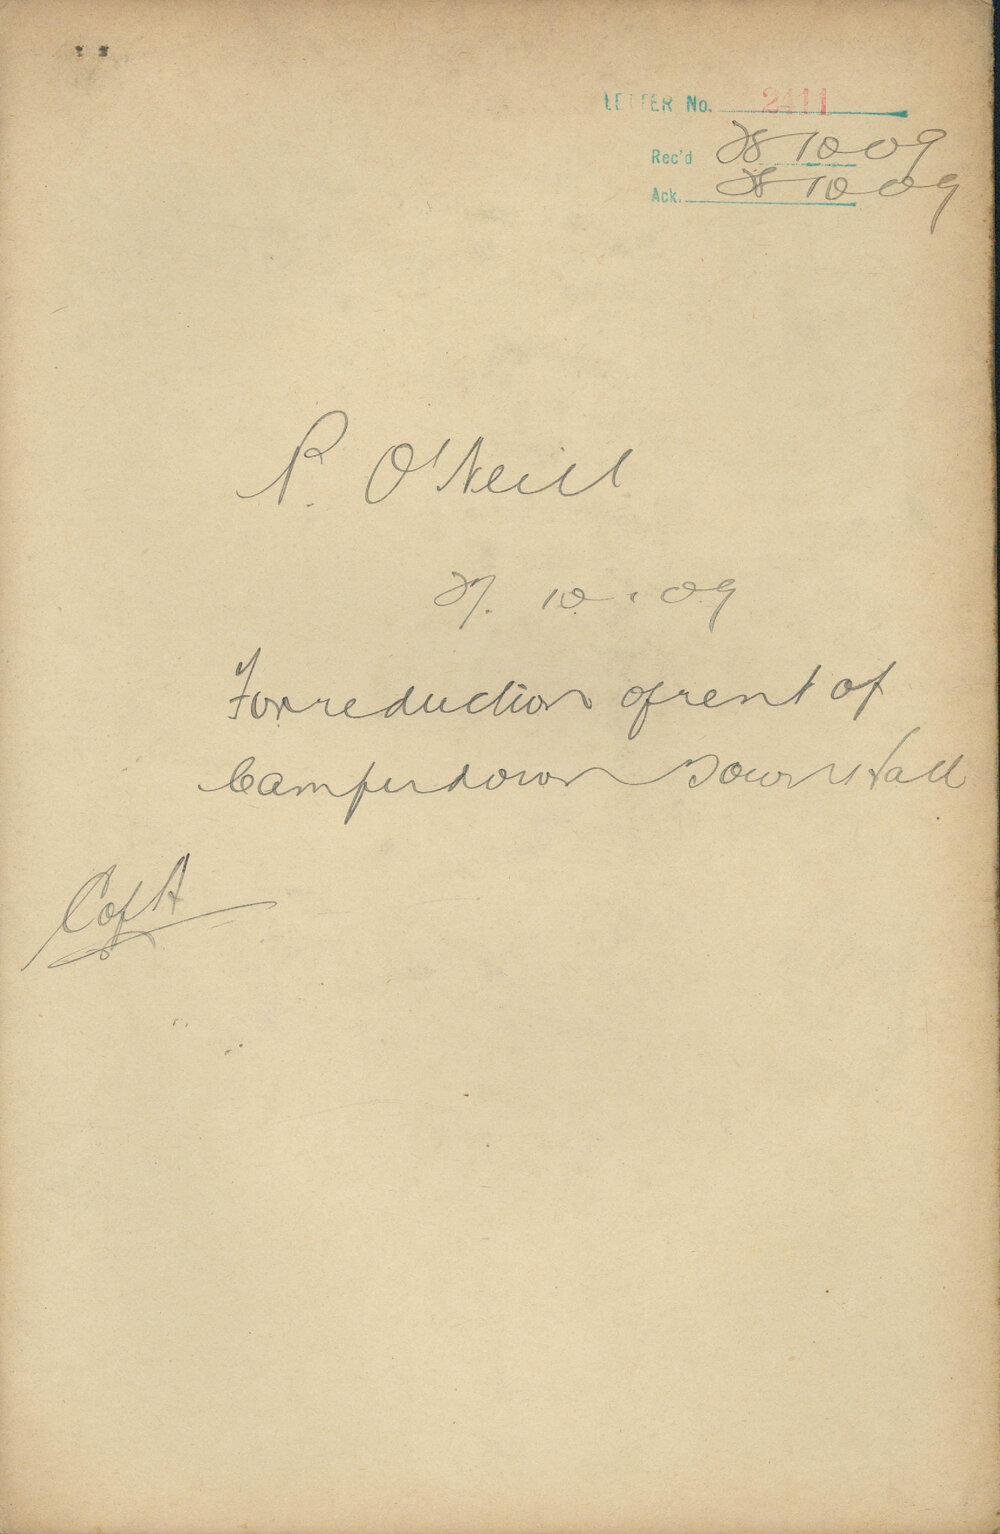 LETTER No. 2411
Rec'd 28 10 09
Ack. 28 10 09
P. O'Neill
27. 10. 09
For reduction of rent of
Camperdown Town Hall
C of A